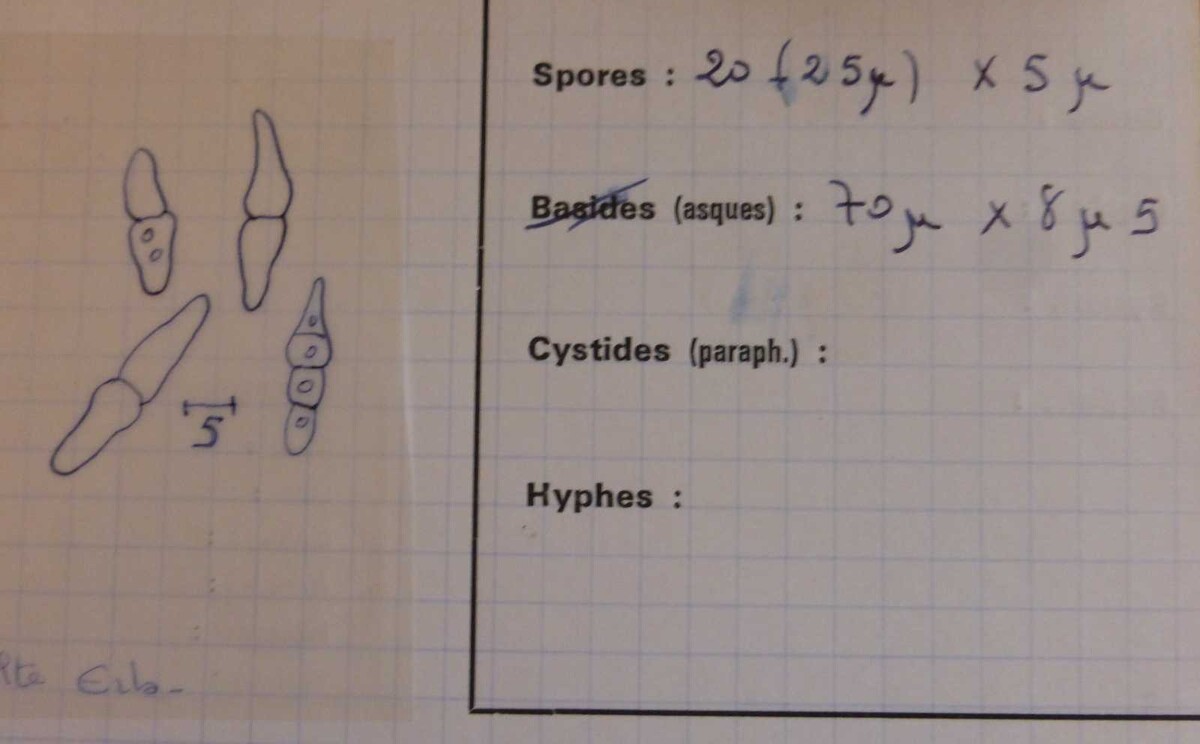 Spores : 20 (25µ) × 5 µ
Basides (asques) : 70µ × 8µ5
Cystides (paraph.) :
Hyphes :
5